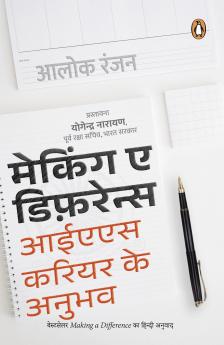 आलोक रंजन
प्रस्तावना
योगेन्द्र नारायण,
पूर्व रक्षा सचिव, भारत सरकार
मेकिंग ए
डिफ़रेन्स
आईएएस
करियर के
अनुभव
बेस्टसेलर Making a Difference का हिन्दी अनुवाद